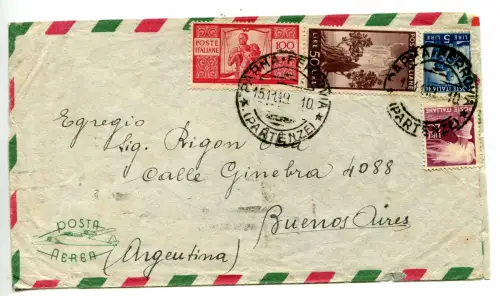 POSTE ITALIANE
100
LIRE 50 LIRE
POSTE ITALIANE
5 LIRE 5
PARMA-FERROVIA
15.11.49 10
(PARTENZE)
(PARTENZE)
Egregio
Sig. Rigon
Calle Ginebra 4088
Buenos Aires
(Argentina)
POSTA
AEREA